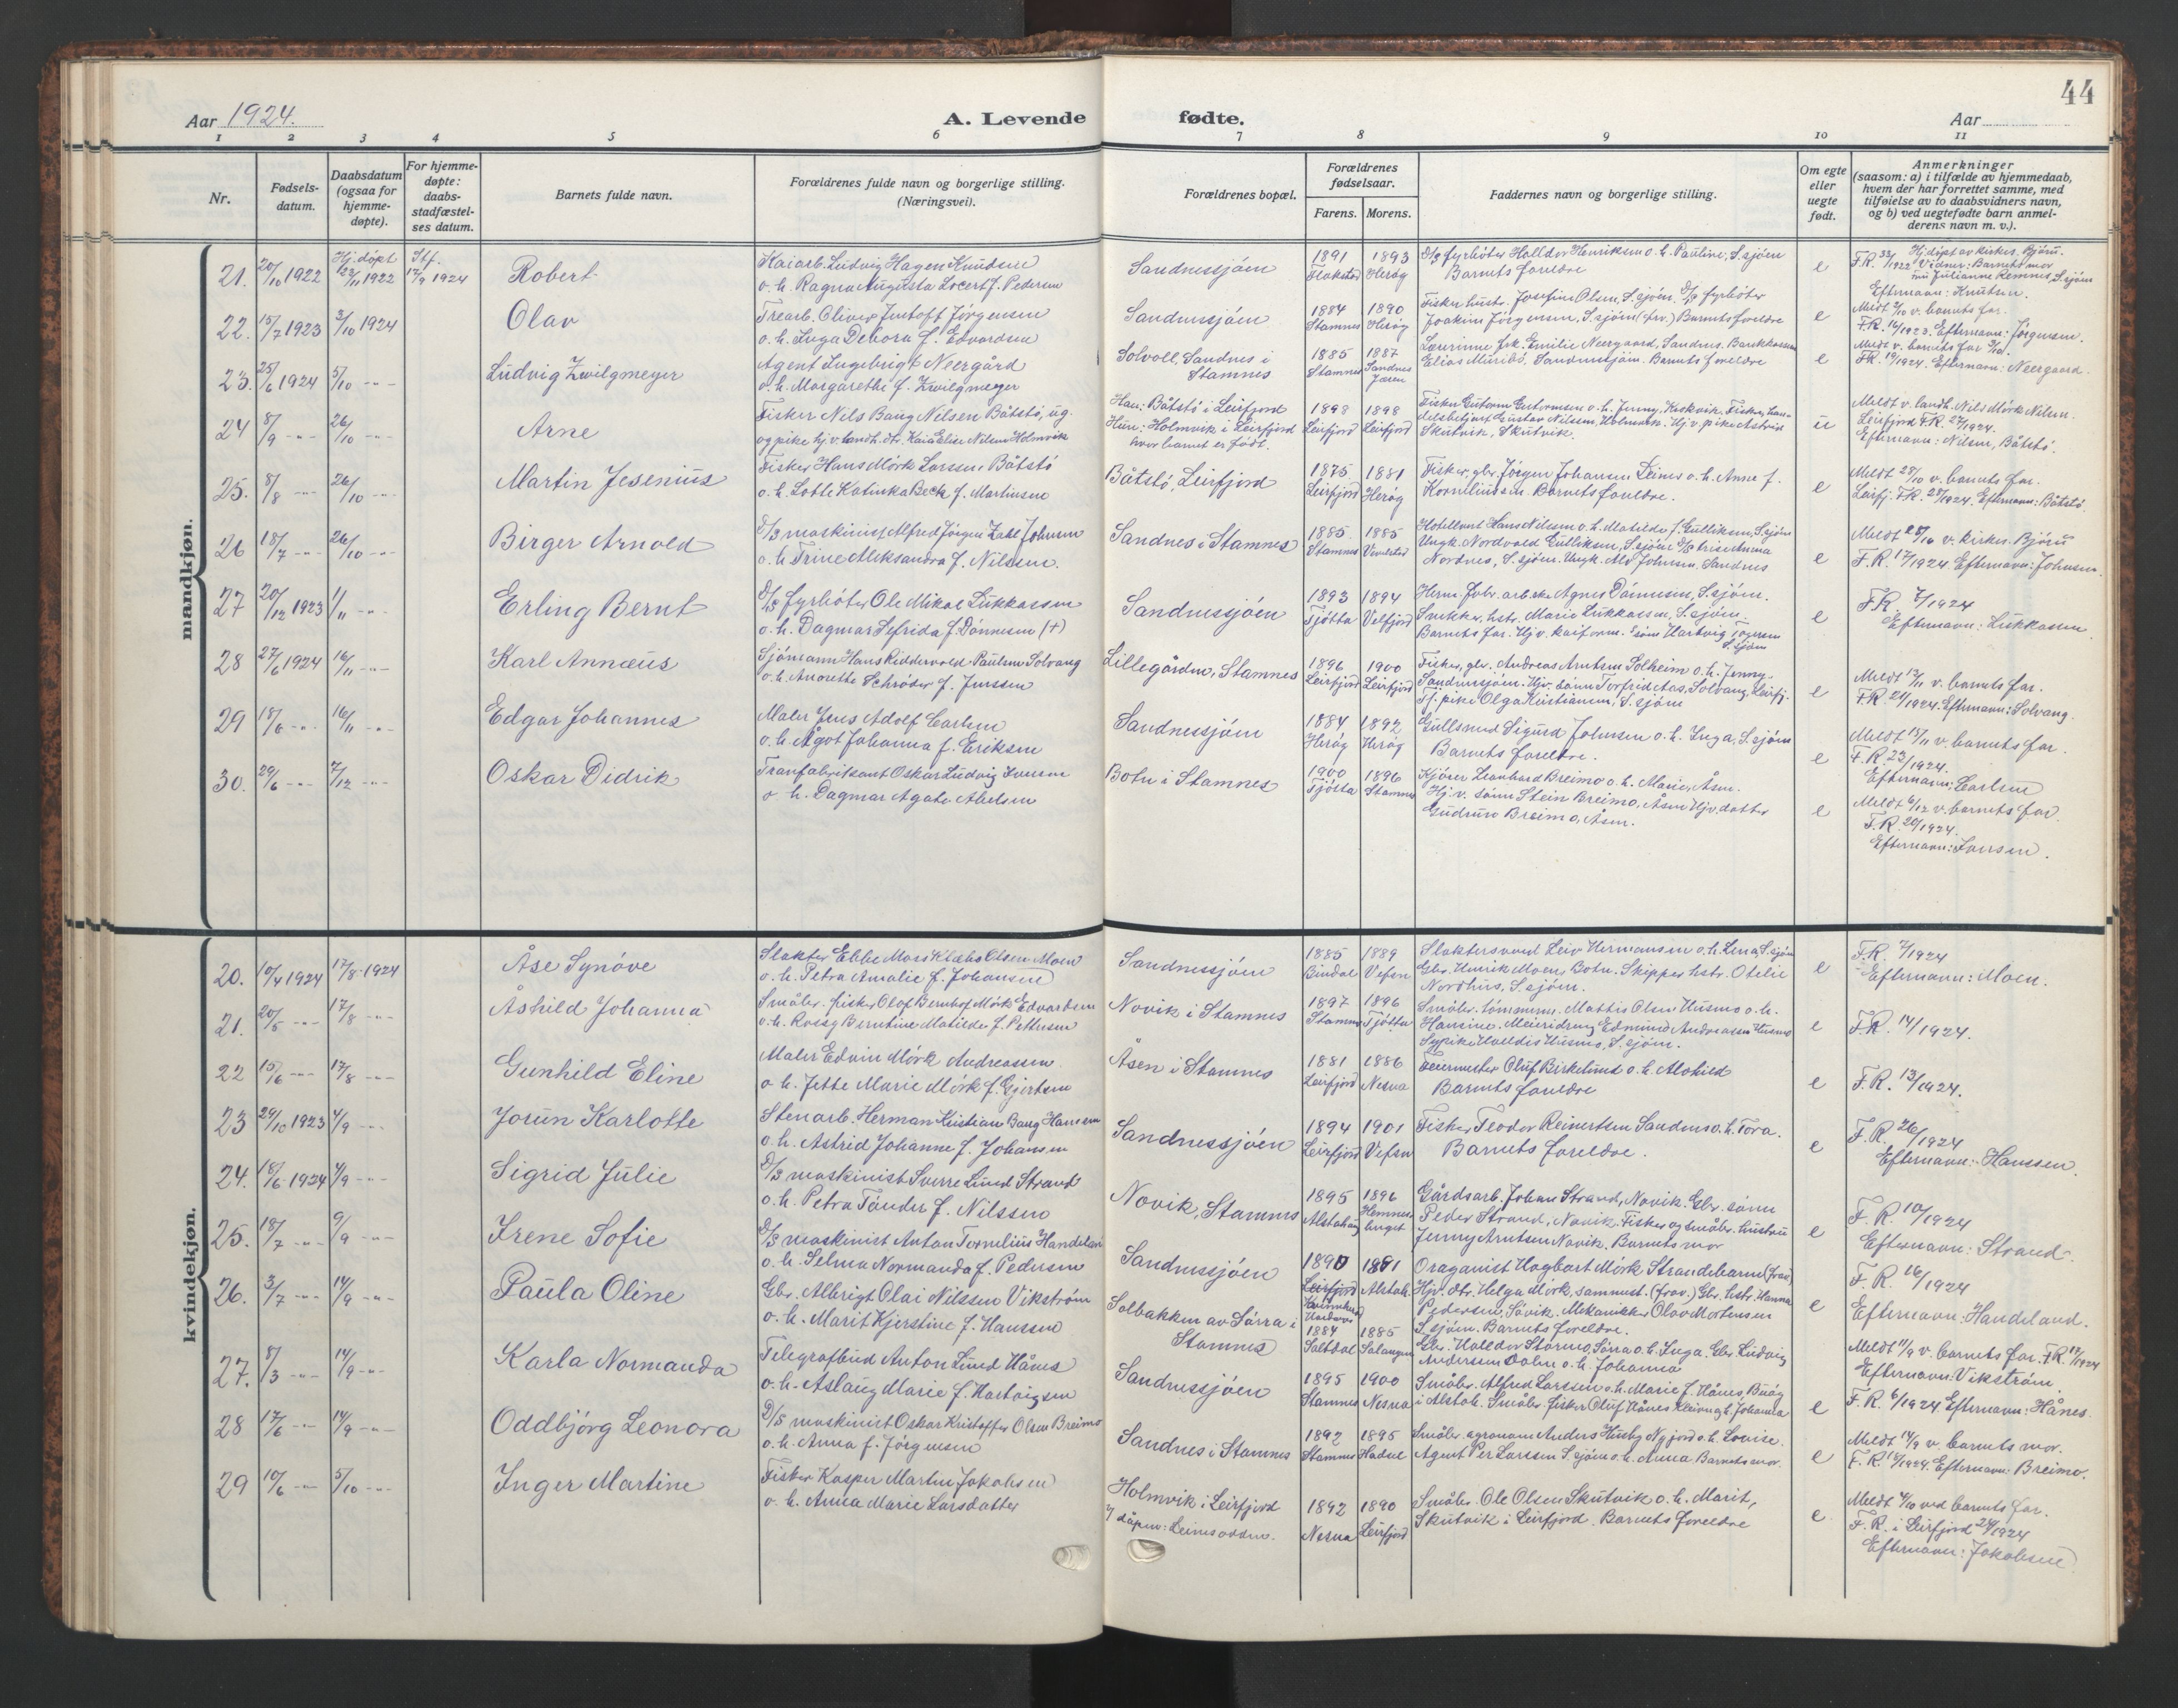 44
Aar 1924.
A. Levende
fødte.
Aar
1 2 3 4 5 6 7 8 9 10 11
Nr.
Fødsels-
datum.
Daabsdatum
(ogsaa for
hjemme-
døpte).
For hjemme-
døpte:
daabs-
stadfæstel-
ses datum.
Barnets fulde navn.
Forældrenes fulde navn og borgerlige stilling.
(Næringsvei).
Forældrenes bopæl.
Forældrenes
fødselsaar.
Farens. Morens.
Faddernes navn og borgerlige stilling.
Om egte
eller
uegte
født.
Anmerkninger
(saasom: a) i tilfælde av hjemmedaab,
hvem der har forrettet samme, med
tilføielse av to daabsvidners navn,
og b) ved uegtefødte barn anmel-
derens navn m. v.).
mandkjøn.
21. 20/10 1922 Hj. døpt 1922 Stf. 17/9 1924 Robert
Kaiarb. Ludvig Hagen Knudsen
o. h. Ragna Augusta Locert f. Pedersen
Sandnessjøen
1891 1893
Flakstad Herøy
D/S fyrbøter Halldor Henriksen o. h. Pauline, S.sjøen
Barnets foreldre
e
Hj. døpt av kirkes. Bjørü.
Vidner: Barnets mor
Julianne Remnes S.sjøen
Efternavn: Knutsen.
22. 15/7 1923 3/10 1924 Olav
Trearb. Oliver Jentoft Jørgensen
o. h. Inga Debora f. Edvardsen
Sandnessjøen
1884 1890
Stamnes Herøy
Fisker hustr. Josefine Olsen, S.sjøen. D/S fyrbøter
Joakim Jørgensen, S.sjøen (frv.) Barnets foreldre
e
Meldt 2/10 v. barnets far.
F.R. 16/1923. Efternavn: Jørgensen.
23. 25/6 1924 5/10 -"- Ludvig Zwilgmeyer
Agent Ingebrigt Neergård
o. h. Margarethe f. Zwilgmeyer
Solvoll, Sandnes i
Stamnes
1885 1887
Stamnes Sandnes
Jæren
Lærerinne frk. Emilie Neergaard, Sandnes. Bankkasserer
Elias Sandnessjøen. Barnets foreldre
e
Meldt v. barnets far
F.R. 19/1924. Efternavn: Neergaard.
24 8/9 -"- 26/10 -"- Arne
Fisker Nils Bang Nilsen Båtstø, ug.
og pike hj. v. landh. dtr. Kaia Elise Nilsen Holmvik
Han: Båtstø i Leirfjord
Hun: Holmvik i Leirfjord
hvor barnet er født.
1898 1898
Leirfjord Leirfjord
Fisker Gutorm Gutormsen o. h. Jenny,
Gustav Nilsen, Holmvik. Hj. v. pike Astrid
Skutvik, Skutvik.
u
Meldt v. landh. Nils Mørk Nilsen.
Leirfjord F.R. 27/1924.
Efternavn: Nilsen, Båtstø.
25. 8/8 -"- 26/10 -"- Martin Jesenius
Fisker Hans Mørk Larssen Båtstø
o. h. Lotte Katinka Beck f. Martinsen
Båtstø, Leirfjord
1875 1881
Leirfjord Herøy
Fisker, gbr. Jørgen Johansen Leines o. h. Anne f.
Korneliussen. Barnets foreldre.
e
Meldt 28/10 v. barnets far.
Leirfj. F.R. 28/1924. Efternavn: Båtstø.
26 18/7 -"- 26/10 -"- Birger Arnold
D/S maskinist Alfred Jørgen Zakl Johnsen
o. h. Trine Aleksandra f. Nilssen.
Sandnes i Stamnes
1885 1885
Stamnes
Hotellvert Hans Nilsen o. h. Matilde f. Gulliksen, S.sjøen
Ungk. Nordvald Gulliksen, S.sjøen D/S trise Anna
Nordnes, S.sjøen. Ungk. Alf Johnsen, Sandnes
e
Meldt 25/10 v. kirkes. Bjørü
F.R. 17/1924. Efternavn: Johnsen.
27 20/12 1923 1/11 -"- Erling Bernt
D/S fyrbøter Ole Mikal Lukkassen
o. h. Dagmar Sefrida f. Dønnesen (+)
Sandnessjøen
1893 1894
Tjøtta Velfjord
Herm. fabr. arb.ske Agnes Dønnesen, S.sjøen.
Snekker, hstr. Marie Lukkassen, S.sjøen.
Barnets far. Hjv. kaiform. sønn Hartvig
S.sjøen
e
F.R. 7/1924
Efternavn: Lukkassen
28 27/6 1924 16/11 -"- Karl Annæus
Sjømann Hans Riddervold Paulsen Solvang
o. h. Anorette Schrøder f. Jenssen
Lillegården, Stamnes
1896 1900
Leirfjord Leirfjord
Fisker, gbr. Andreas Arntsen Solheim o. h. Jenny
Sandnessjøen. Hjv. sønn Torfrid Aas, Solvang, Leirfj.
Tj. pike Olga Kristiansen, S.sjøen
e
Meldt 13/11 v. barnets far.
F.R. 21/1924. Efternavn: Solvang.
29 18/6 -"- 16/11 -"- Edgar Johannes
Maler Jens Adolf Carlsen
o. h. Ågot Johanna f. Eriksen
Sandnessjøen
1884 1892
Herøy Herøy
Gullsmed Sigurd Johnsen o. h. Inga, S.sjøen
Barnets foreldre.
e
Meldt 15/11 v. barnets far.
F.R. 23/1924.
Efternavn: Carlsen
30. 29/6 -"- 7/12 -"- Oskar Didrik
Tranfabrikant Oskar Ludvig Iversen
o. h. Dagmar Agate Abelsen
Botn i Stamnes
1900 1896
Tjøtta Stamnes
Kjører Leonhard Breimo o. h. Marie, Åsen.
Hj. v. sønn Stein Breimo, Åsen Hjv. datter
Gudrun Breimo, Åsen.
e
Meldt 6/12 v. barnets far.
F.R. 20/1924.
Efternavn: Iversen.
kvindekjøn.
20. 10/4 1924 17/8 1924 Åse Synøve
Slakter Ebbe Mars Klæbo Olsen Moen
o. h. Petra Amalie f. Johansen
Sandnessjøen
1885 1889
Bindal Vefsn
Slaktersvend Leiv Hermansen o. h. Lena, S.sjøen
Gbr. Henrik Moen, Botn. Skipper hstr. Otelie
Nordhus, S.sjøen.
e
F.R. 7/1924
Efternavn: Moen.
21. 20/5 -"- 17/8 -"- Åshild Johanna
Småbr. fisker Olof Bernhof Mørk Edvardsen
o. h. Rossy Berntine Matilde f. Pettersen
Novik i Stamnes
1897 1896
Stamnes Tjøtta
Småbr. tømmerm. Mattis Olsen Husmo o. h.
Hansine. Meieridreng Edmund Andreassen Husmo
Sypike Husmo, S.sjøen.
e
F.R. 14/1924.
22 15/6 -"- 17/8 -"- Gunhild Eline
Maler Edvin Mørk Andreassen
o. h. Jette Marie Mørk f. Gjertsen
Åsen i Stamnes
1881 1886
Leirfjord Nesna
Feiermester Oluf Birkelund o. h. Alohild
Barnets foreldre
e
F.R. 13/1924.
23 29/10 1923 7/9 -"- Jorun Karlotte
Stenarb. Herman Kristian Bang Hansen
o. h. Astrid Johanne f. Johansen
Sandnessjøen
1894 1901
Leirfjord Vefsn
Fisker Teodor Reinertsen Sandnes o. h. Tora.
Barnets foreldre.
e
F.R. 26/1924
Efternavn: Hanssen.
24. 18/6 1924 7/9 -"- Sigrid Julie
D/S maskinist Sverre Lund Strand
o. h. Petra Tønder f. Nilssen
Novik, Stamnes
1895 1896
Alstahaug Hemnes-
berget
Gårdsarb. Johan Strand, Novik. Gbr. sønn
Peder Strand, Novik. Fisker og småbr. hustru
Jenny Arntsen Novik. Barnets mor
e
F.R. 10/1924
Efternavn: Strand.
25. 18/7 -"- 9/9 -"- Irene Sofie
D/S maskinist Anton Tornelius Handeland
o. h. Selma Normanda f. Pedersen
Sandnessjøen
1890 1891
Leirfjord Alstah.
Oraganist Hagbart Mørk Strandebarm (frav.)
Hjv. dtr. Helga Mørk, sammest. (frav.) Gbr. hstr. Hanna
Pedersen, Søvik. Mekanikker Olav Mortensen
S.sjøen. Barnets foreldre.
e
F.R. 16/1924
Efternavn: Handeland.
26. 3/7 -"- 14/9 -"- Paula Oline
Gbr. Albrigt Olai Nilssen Vikstrøm
o. h. Marit Kjerstine f. Hanssen
Solbakken av Sørra i
Stamnes
1884 1885
Saltdal Salangen
Gbr. Halldor Størmo, Sørra o. h. Inga. Gbr. Ludvig
Anderssen Dalen o. h. Johanna
Meldt 11/9 v. barnets far. F.R. 12/1924
Efternavn: Vikstrøm.
27. 8/3 -"- 14/9 -"- Karla Normanda
Telegrafbud Anton Lund Hånes
o. h. Aslaug Marie f. Hartvigsen
Sandnessjøen
1895 1900
Stamnes Nesna
Småbr. Alfred Larssen o. h. Marie f. Hånes,
i Alstah. Småbr. fisker Oluf Hånes o. h. Johanna
e
F.R. 6/1924. Efternavn: Hånes.
28 17/6 -"- 14/9 -"- Oddbjørg Leonora
D/S maskinist Oskar Kristoffer Olsen Breimo
o. h. Anna f. Jørgensen
Sandnes i Stamnes
1892 1895
Stamnes Hadsel
Småbr. agronom Anders Husby Nyjord o. h. Lovise.
Agent Per Larssen S.sjøen o. h. Anna Barnets mor.
e
Meldt 14/9 v. barnets mor.
F.R. 15/1924. Efternavn: Breimo.
29 10/6 -"- 5/10 -"- Inger Martine
Fisker Kasper Martin Jakobsen
o. h. Anna Marie Larsdatter
Holmvik i Leirfjord
v/ dåpen: Leinesodden.
1892 1890
Nesna Leirfjord
Småbr. Ole Olsen Skutvik o. h. Marit,
Skutvik i Leirfjord. Barnets foreldre
e
Meldt 4/10 ved barnets far.
F.R. i Leirfjord 24/1924
Efternavn: Jakobsen